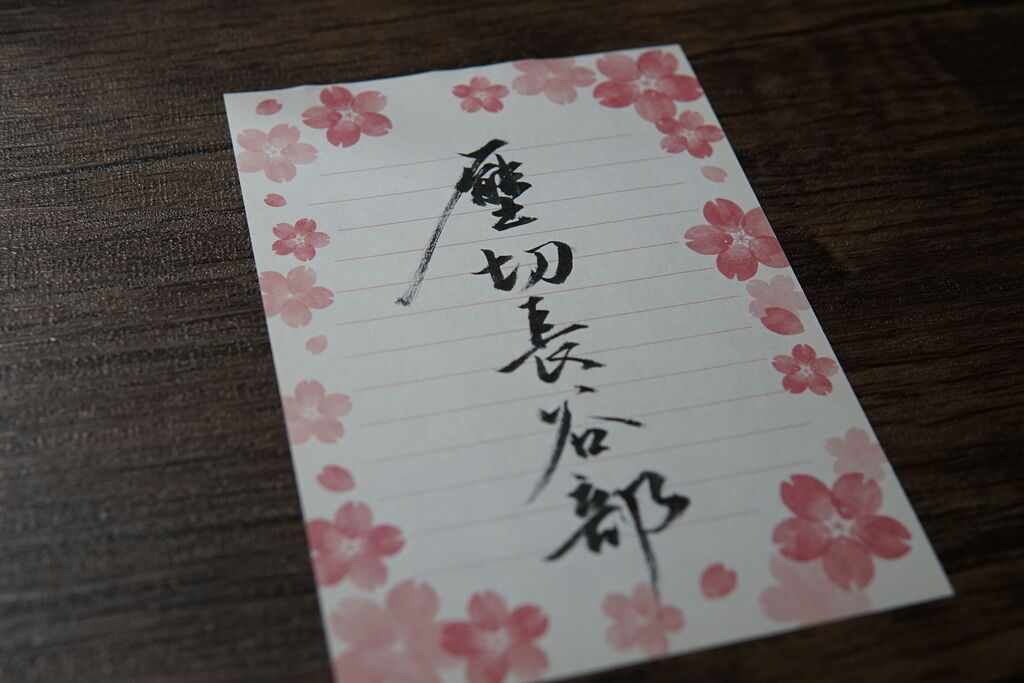 壓切長谷部